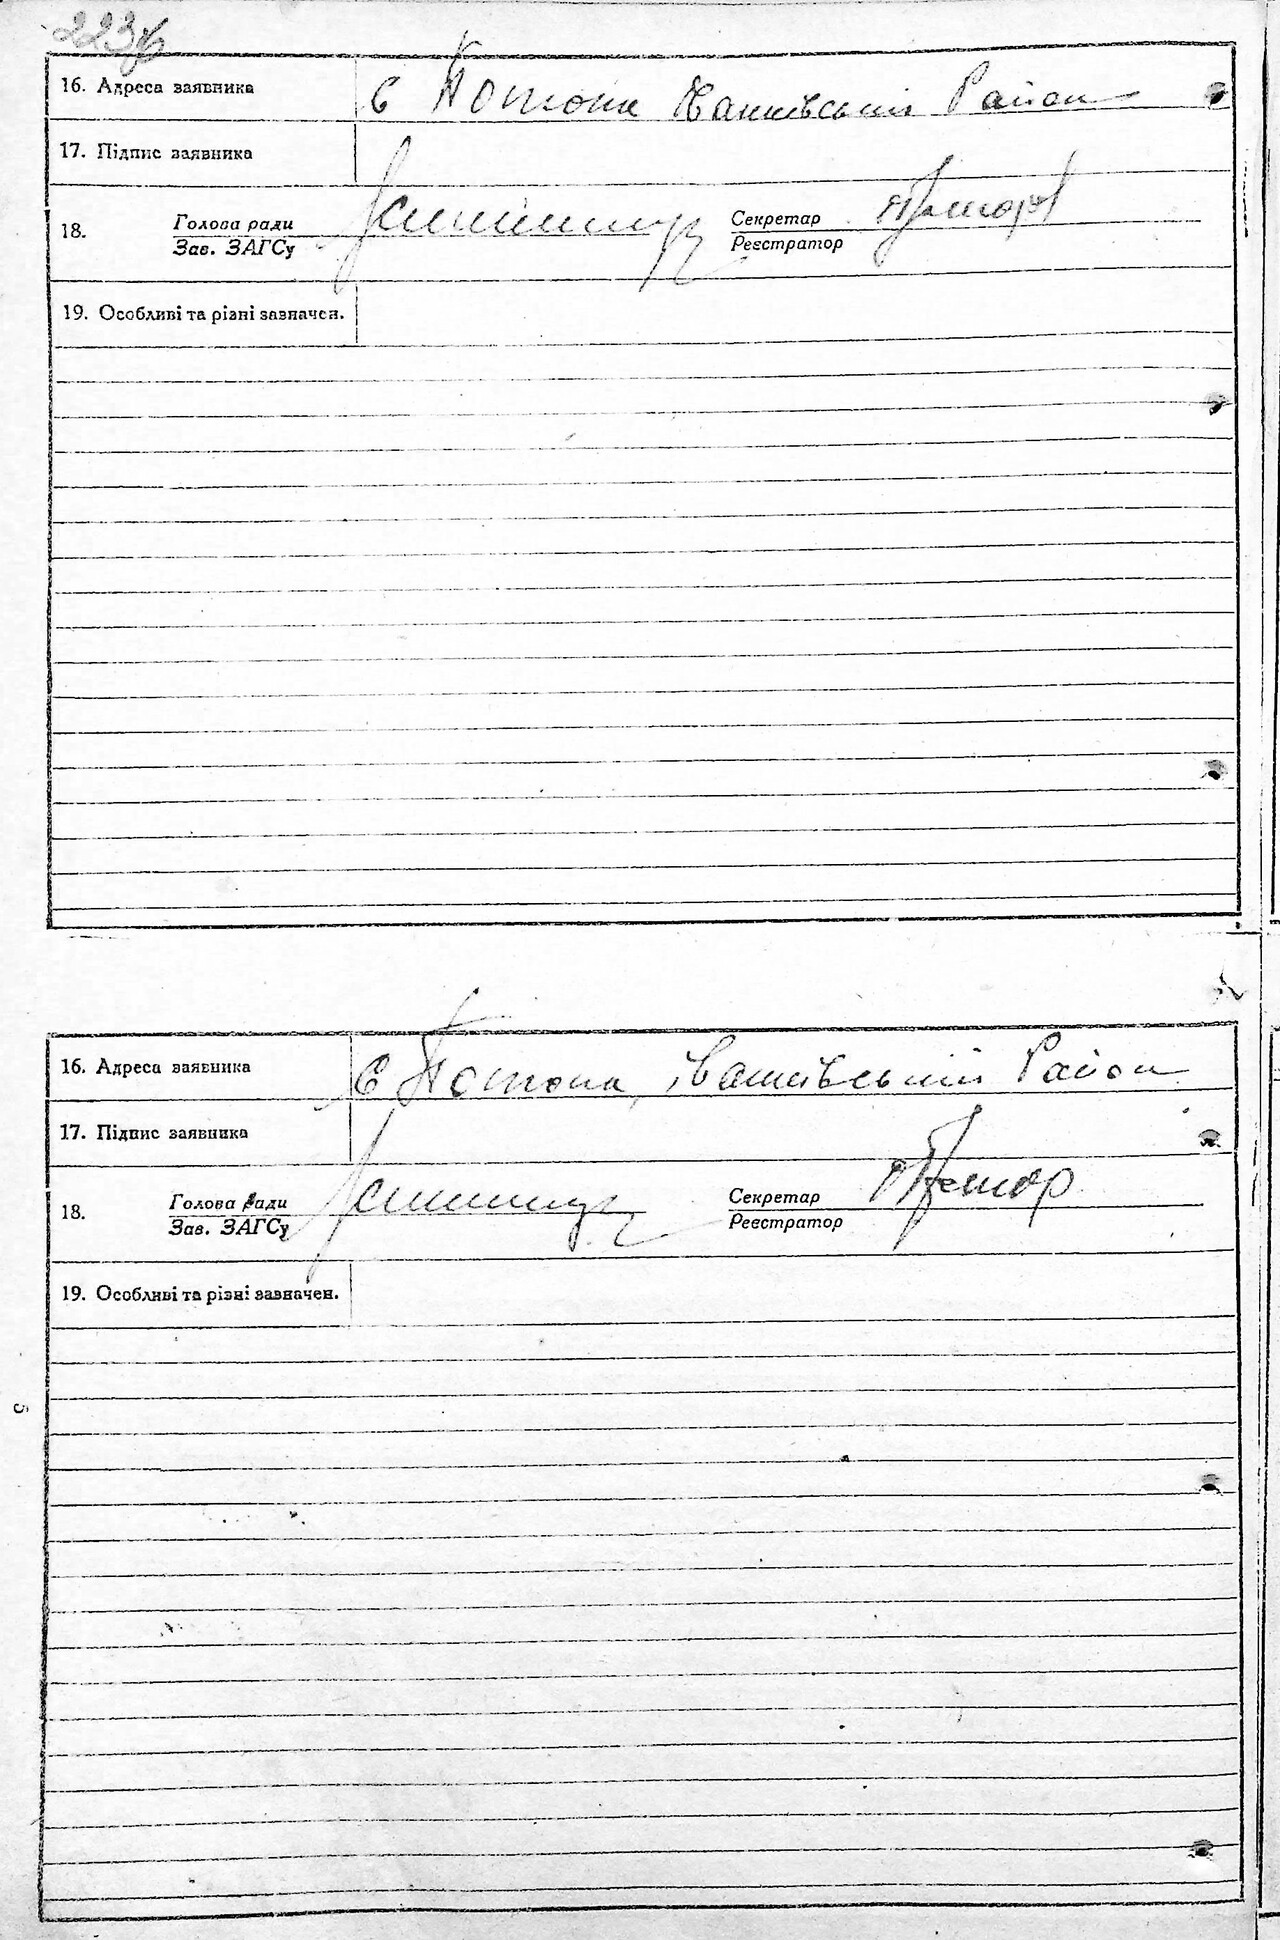 223
16. Адреса заявника
с Потоки Іванківський Район
17. Підпис заявника
18. Голова ради Секретар
Зав. ЗАГСу Реєстратор
19. Особливі та різні зазначен.
16. Адреса заявника
с Потоки, Іванківський Район
17. Підпис заявника
18. Голова ради Секретар
Зав. ЗАГСу Реєстратор
19. Особливі та різні зазначен.
5